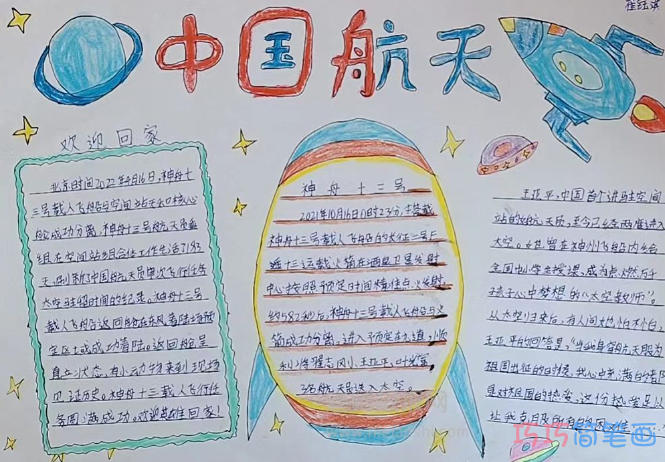 中国航天
欢迎回家
北京时间2022年4月16日,神舟十
三号载人飞船与空间站天和核心
舱成功分离,神舟十三号航天员乘
组在空间站组合体工作生活了183
天,刷新了中国航天员单次飞行任务
太空驻留时间的纪录。神舟十三号
载人飞船返回舱在东风着陆场预
定区域成功着陆。返回舱呈
直立状态,有小动物来到现场
见证历史。神舟十三载人飞行任
务圆满成功。欢迎英雄回家!
神舟十三号
2021年10月16日0时23分,搭载
神舟十三号载人飞船的长征二号F
遥十三运载火箭在酒泉卫星发射
中心按照预定时间精准点火发射
约582秒后,神舟十三号载人飞船与火
箭成功分离,进入了预定轨道,顺
利将翟志刚、王亚平、叶光富
3名航天员送入太空。
王亚平,中国首个进驻空间
站的女航天员,至今已经两度进入
太空。她曾在神州飞船内给
全国中小学生授课,成为点燃万千
孩子心中梦想的“太空教师”。
从太空归来后,有人问她怕不怕,
王亚平的回答是,“当
祖国出征的时候,我心中
是对祖国的热爱,这份热爱足以
让我克服所有的困难
巧巧简笔画